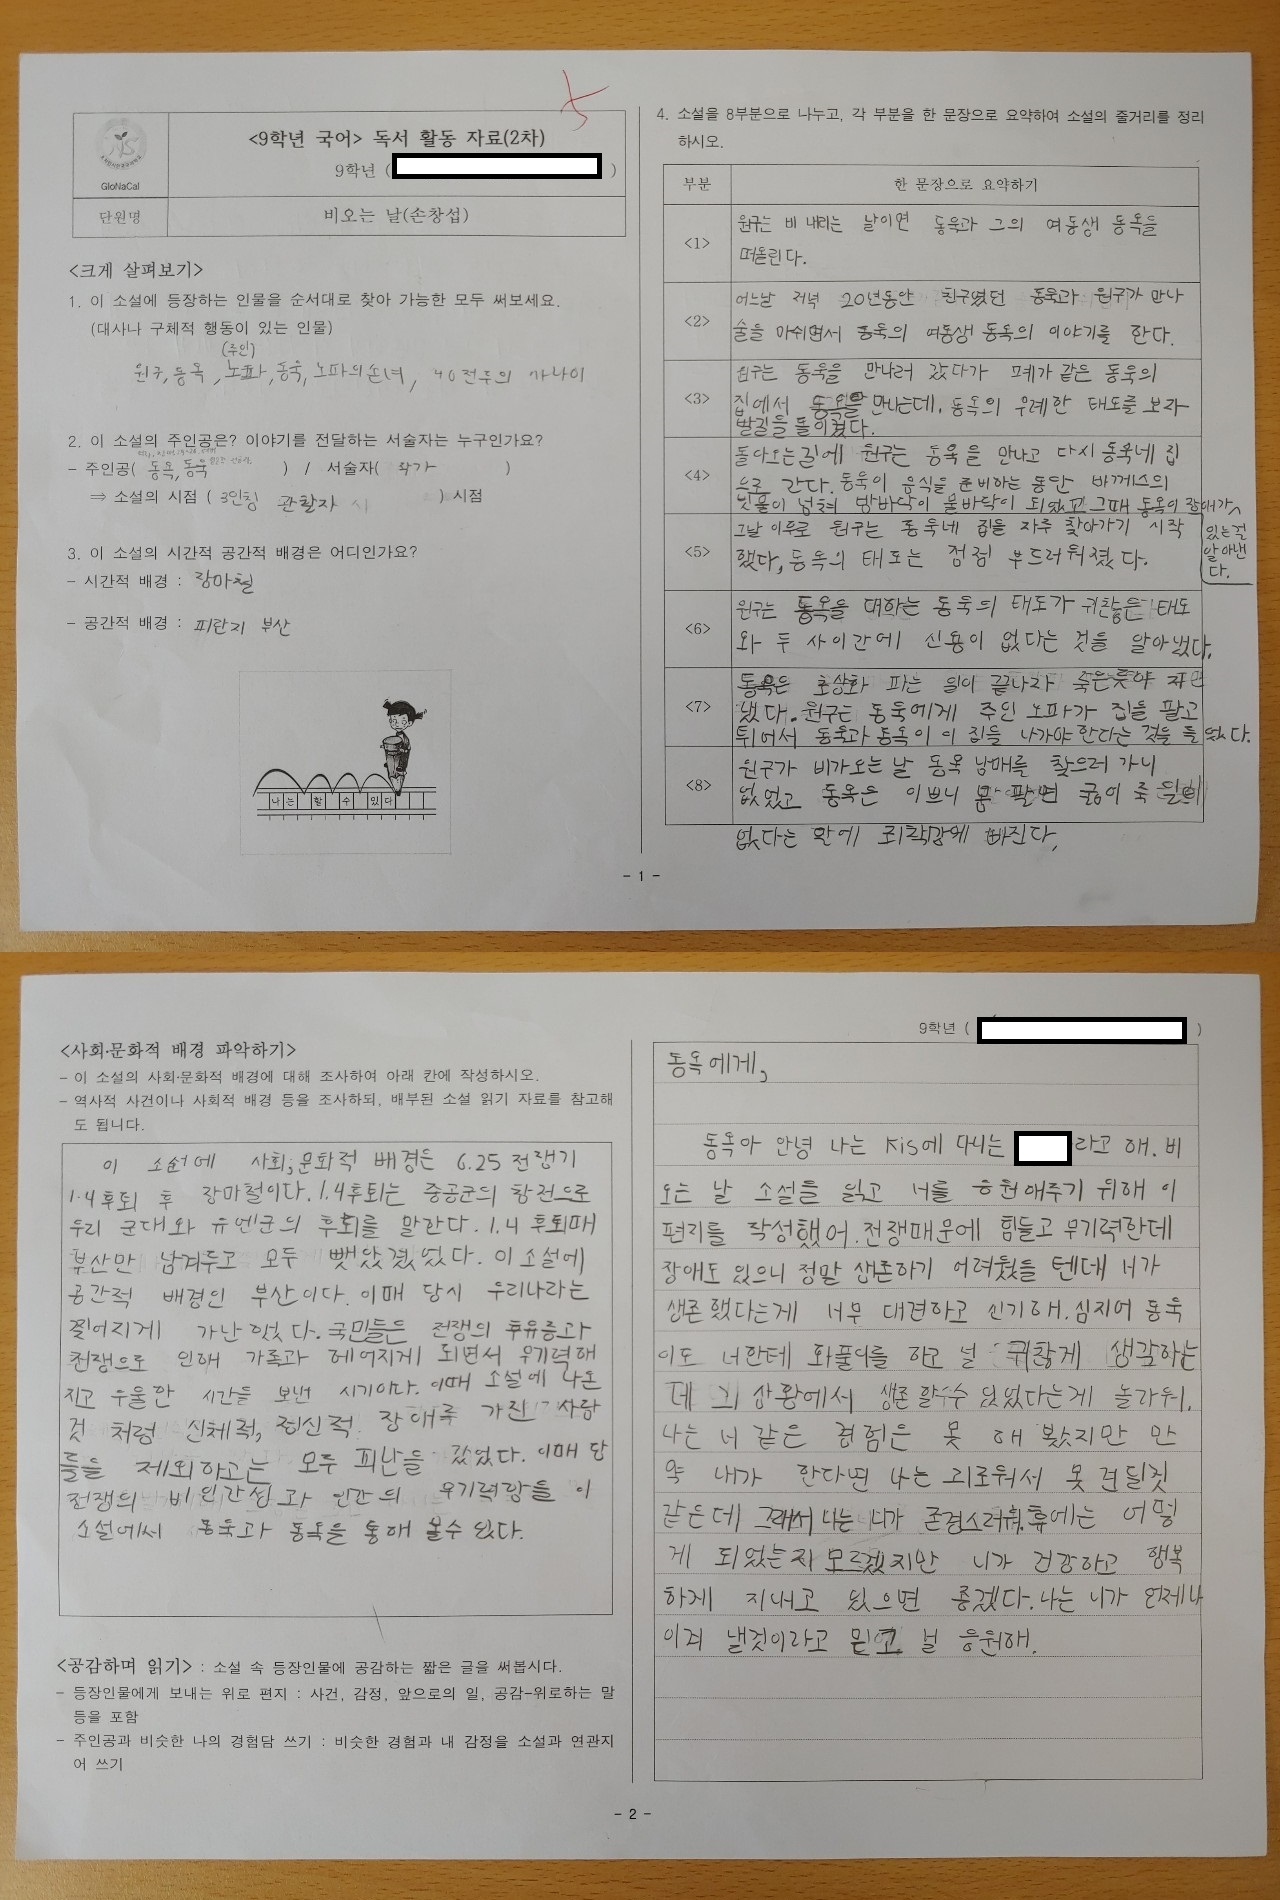 <9학년 국어> 독서 활동 자료(2차)
9학년 ( )
GloNaCal
단원명
비오는 날(손창섭)
<크게 살펴보기>
1. 이 소설에 등장하는 인물을 순서대로 찾아 가능한 모두 써보세요.
(대사나 구체적 행동이 있는 인물)
(주인)
원구, 동옥, 노파, 동욱, 노파의 손녀, 40전후의 사나이
2. 이 소설의 주인공은? 이야기를 전달하는 서술자는 누구인가요?
- 주인공( 동옥, 동욱 ) / 서술자( 작가 )
⇒ 소설의 시점 ( 3인칭 관찰자 ) 시점
3. 이 소설의 시간적 공간적 배경은 어디인가요?
- 시간적 배경 : 장마철
- 공간적 배경 : 피란지 부산
나는 할 수 있다
4. 소설을 8부분으로 나누고, 각 부분을 한 문장으로 요약하여 소설의 줄거리를 정리
하시오.
부분
한 문장으로 요약하기
<1>
원구는 비 내리는 날이면 동욱과 그의 여동생 동옥을
떠올린다.
<2>
어느날 저녁 20년동안 친구였던 동욱과 원구가 만나
술을 마쉬면서 동욱의 여동생 동옥의 이야기를 한다.
<3>
원구는 동욱을 만나러 갔다가 폐가 같은 동욱의
집에서 동옥을 만나는데, 동옥의 무례한 태도를 보자
발길을 돌이켰다.
<4>
돌아오는 길에 원구는 동욱을 만나고 다시 동욱네 집
으로 간다. 동욱이 음식을 준비하는 동안 바께스의
빗물이 넘쳐 방바닥이 물바닥이 되었고 그때 동옥이 장애가
있는걸
알아낸
다.
<5>
그날 이후로 원구는 동욱네 집을 자주 찾아가기 시작
했다, 동옥의 태도는 점점 부드러워졌다.
<6>
원구는 동옥을 대하는 동욱의 태도가 귀찮은 태도
와 두 사이간에 신용이 없다는 것을 알아냈다.
<7>
동옥은 초상화 파는 일이 끝나자 죽은듯이 지
냈다. 원구는 동욱에게 주인 노파가 집을 팔고
튀어서 동욱과 동옥이 이 집을 나가야 한다는 것을 들었다.
<8>
원구가 비가오는 날 동욱 남매를 찾으러 가니
없었고 동옥은 이쁘니 몸 팔면 굶어 죽을일이
없다는 말에 죄책감에 빠진다.
- 1 -
<사회·문화적 배경 파악하기>
- 이 소설의 사회·문화적 배경에 대해 조사하여 아래 칸에 작성하시오.
- 역사적 사건이나 사회적 배경 등을 조사하되, 배부된 소설 읽기 자료를 참고해
도 됩니다.
이 소설에 사회,문화적 배경은 6.25 전쟁기
1.4후퇴 후 장마철이다. 1.4후퇴는 중공군의 참전으로
우리 군대와 유엔군의 후퇴를 말한다. 1.4 후퇴때
부산만 남겨두고 모두 뺏았겼었다. 이 소설에
공간적 배경인 부산이다. 이때 당시 우리나라는
찢어지게 가난했다. 국민들은 전쟁의 후유증과
전쟁으로 인해 가족과 헤어지게 되면서 무기력해
지고 우울한 시간을 보낸 시기이다. 이때 소설에 나온
것 처럼 신체적, 정신적 장애를 가진 사람
들을 제외하고는 모두 피난을 갔었다. 이때 당
전쟁의 비인간성과 인간의 무기력함을 이
소설에서 동욱과 동옥을 통해 볼수 있다.
<공감하며 읽기> : 소설 속 등장인물에 공감하는 짧은 글을 써봅시다.
- 등장인물에게 보내는 위로 편지 : 사건, 감정, 앞으로의 일, 공감-위로하는 말
등을 포함
- 주인공과 비슷한 나의 경험담 쓰기 : 비슷한 경험과 내 감정을 소설과 연관지
어 쓰기
9학년 ( )
동옥에게,
동옥아 안녕 나는 KIS에 다니는 라고 해. 비
오는 날 소설을 읽고 너를 응원해주기 위해 이
편지를 작성했어. 전쟁때문에 힘들고 무기력한데
장애도 있으니 정말 생존하기 어려웠을 텐데 너가
생존했다는게 너무 대견하고 신기해. 심지어 동욱
이도 너한테 화풀이를 하고 널 귀찮게 생각하는
데 그 상황에서 생존할수 있었다는게 놀라워.
나는 너 같은 경험은 못 해 봤지만 만
약 내가 한다면 나는 괴로워서 못 견딜것
같은데 그래서 나는 니가 존경스러워. 후에는 어떻
게 되었는지 모르겠지만 니가 건강하고 행복
하게 지내고 있으면 좋겠다. 나는 니가 언제나
이겨 낼것이라고 믿고 널 응원해.
- 2 -